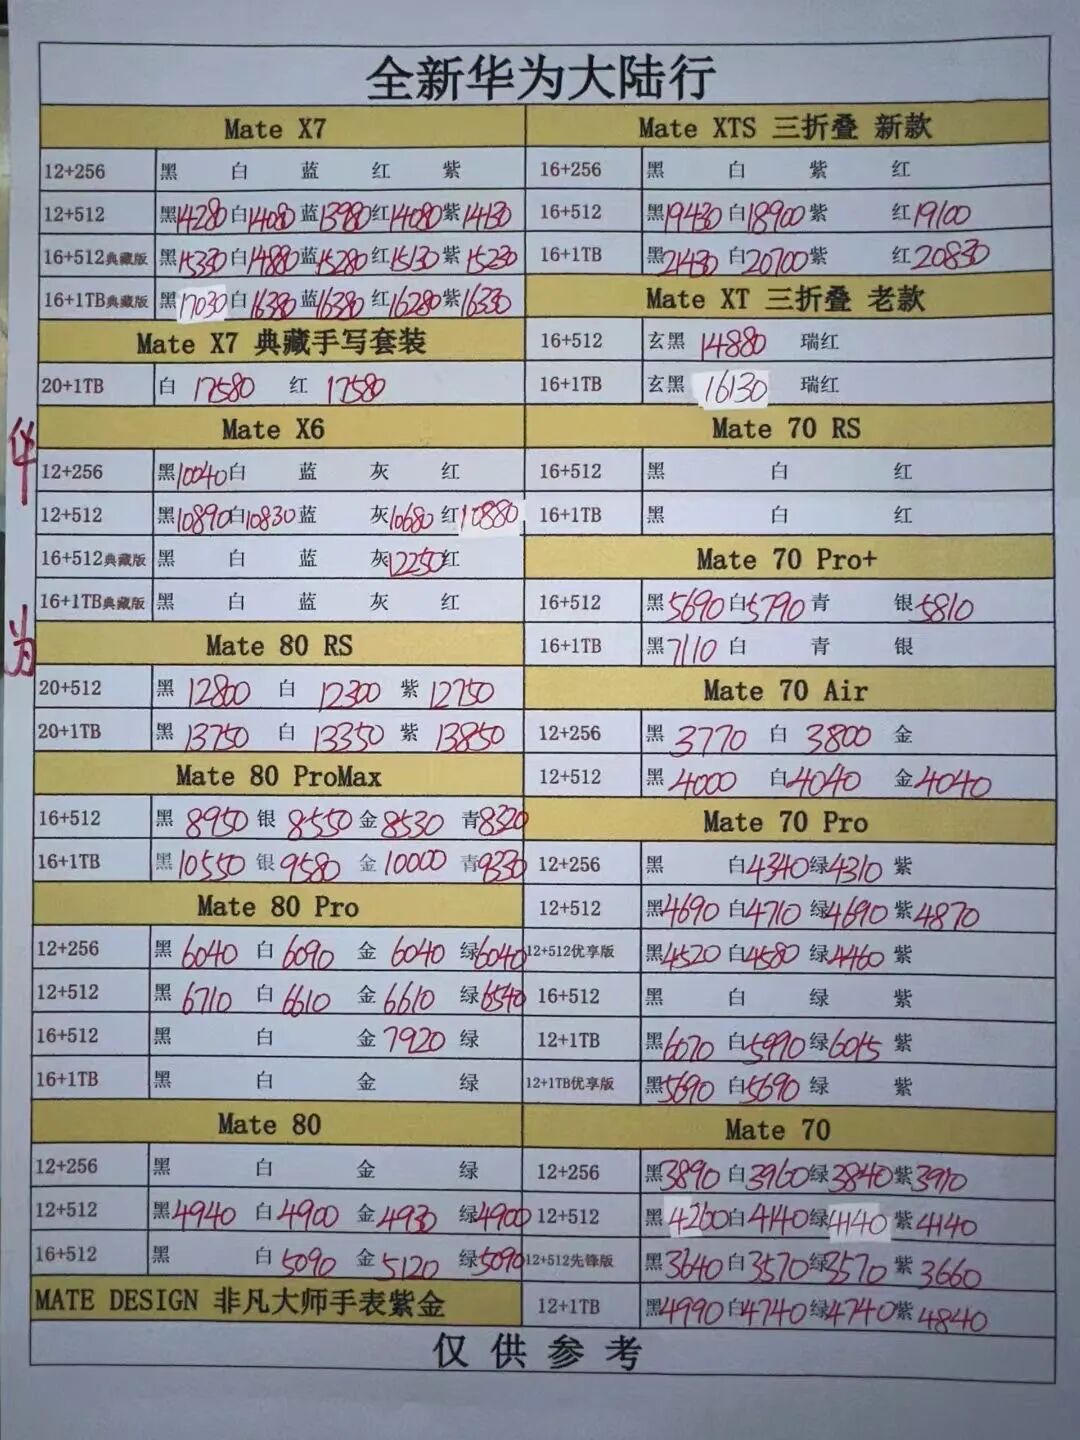 全新华为大陆行
Mate X7
12+256 黑 白 蓝 红 紫
12+512 黑14280 白14080 蓝13980 红14080 紫14130
16+512典藏版 黑15330 白14880 蓝15280 红15130 紫15230
16+1TB典藏版 黑17030 白16380 蓝16380 红16280 紫16330
Mate X7 典藏手写套装
20+1TB 白 17580 红 17580
Mate X6
12+256 黑10040 白 蓝 灰 红
12+512 黑10890 白10830 蓝 灰10680 红10880
16+512典藏版 黑 白 蓝 灰12250 红
16+1TB典藏版 黑 白 蓝 灰 红
Mate 80 RS
20+512 黑 12800 白 12300 紫 12750
20+1TB 黑 13750 白 13350 紫 13850
Mate 80 ProMax
16+512 黑 8950 银 8550 金 8530 青8320
16+1TB 黑 10550 银 9580 金 10000 青9330
Mate 80 Pro
12+256 黑 6040 白 6090 金 6040 绿6040
12+512 黑 6710 白 6610 金 6610 绿6540
16+512 黑 白 金 7920 绿
16+1TB 黑 白 金 绿
Mate 80
12+256 黑 白 金 绿
12+512 黑4940 白4900 金4930 绿4900
16+512 黑 白5090 金5120 绿5090
MATE DESIGN 非凡大师手表紫金
Mate XTS 三折叠 新款
16+256 黑 白 紫 红
16+512 黑19430 白18900 紫 红19100
16+1TB 黑21430 白20700 紫 红20830
Mate XT 三折叠 老款
16+512 玄黑 14880 瑞红
16+1TB 玄黑 16130 瑞红
Mate 70 RS
16+512 黑 白 红
16+1TB 黑 白 红
Mate 70 Pro+
16+512 黑5690 白5790 青 银5810
16+1TB 黑7110 白 青 银
Mate 70 Air
12+256 黑 3770 白 3800 金
12+512 黑 4000 白4040 金4040
Mate 70 Pro
12+256 黑 白4340 绿4310 紫
12+512 黑4690 白4710 绿4690 紫4870
12+512优享版 黑4520 白4580 绿4460 紫
16+512 黑 白 绿 紫
12+1TB 黑6070 白5990 绿6015 紫
12+1TB优享版 黑5690 白5690 绿 紫
Mate 70
12+256 黑3890 白3960 绿3840 紫3910
12+512 黑4260 白4140 绿4140 紫4140
12+512先锋版 黑3640 白3570 绿3570 紫3660
12+1TB 黑4990 白4740 绿4740 紫4840
仅供参考
华为